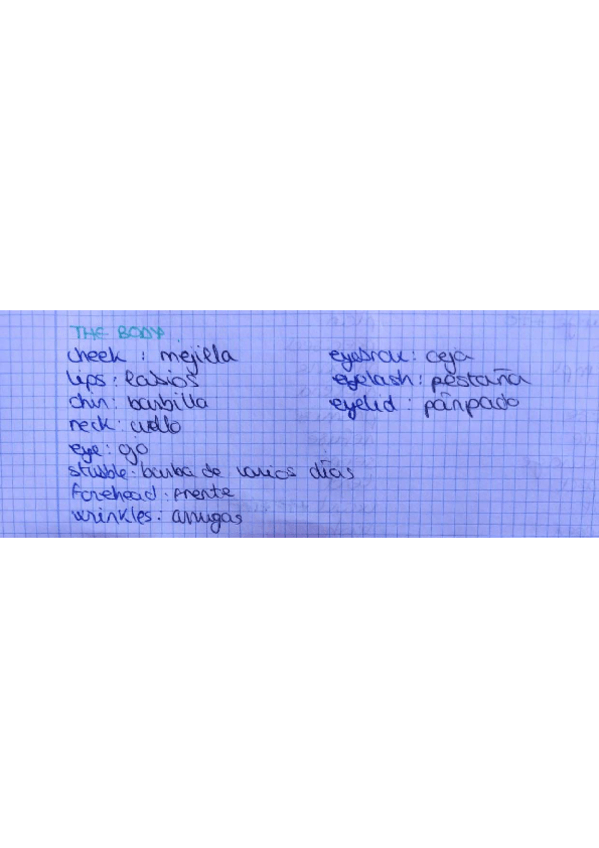 THE BODY.
cheek : mejilla
lips : labios
chin : barbilla
neck : cuello
eye : ojo
stubble : barba de varios días
forehead : frente
wrinkles : arrugas
eyebrow : ceja
eyelash : pestaña
eyelid : párpado